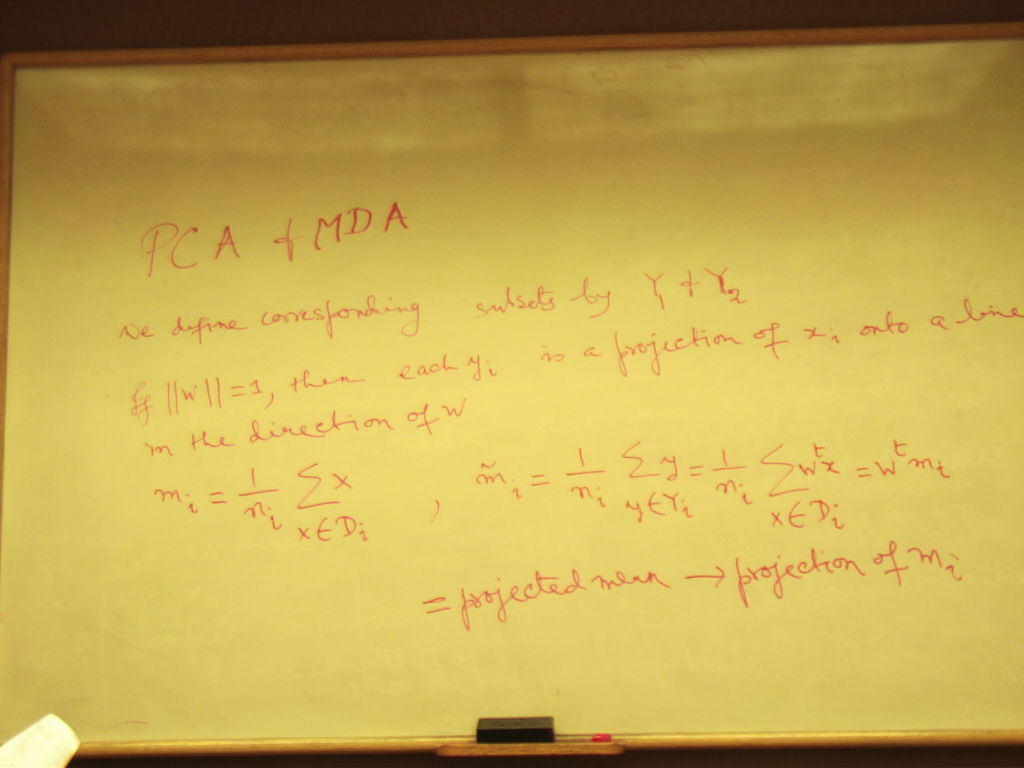 PCA & MDA
We define corresponding subsets by Y₁ & Y₂
If ||w||=1, then each yᵢ is a projection of xᵢ onto a line
in the direction of w
mᵢ = 1/nᵢ ∑_{x∈Dᵢ} x , m̃ᵢ = 1/nᵢ ∑_{y∈Yᵢ} y = 1/nᵢ ∑_{x∈Dᵢ} wᵗx = wᵗmᵢ
= projected mean → projection of mᵢ